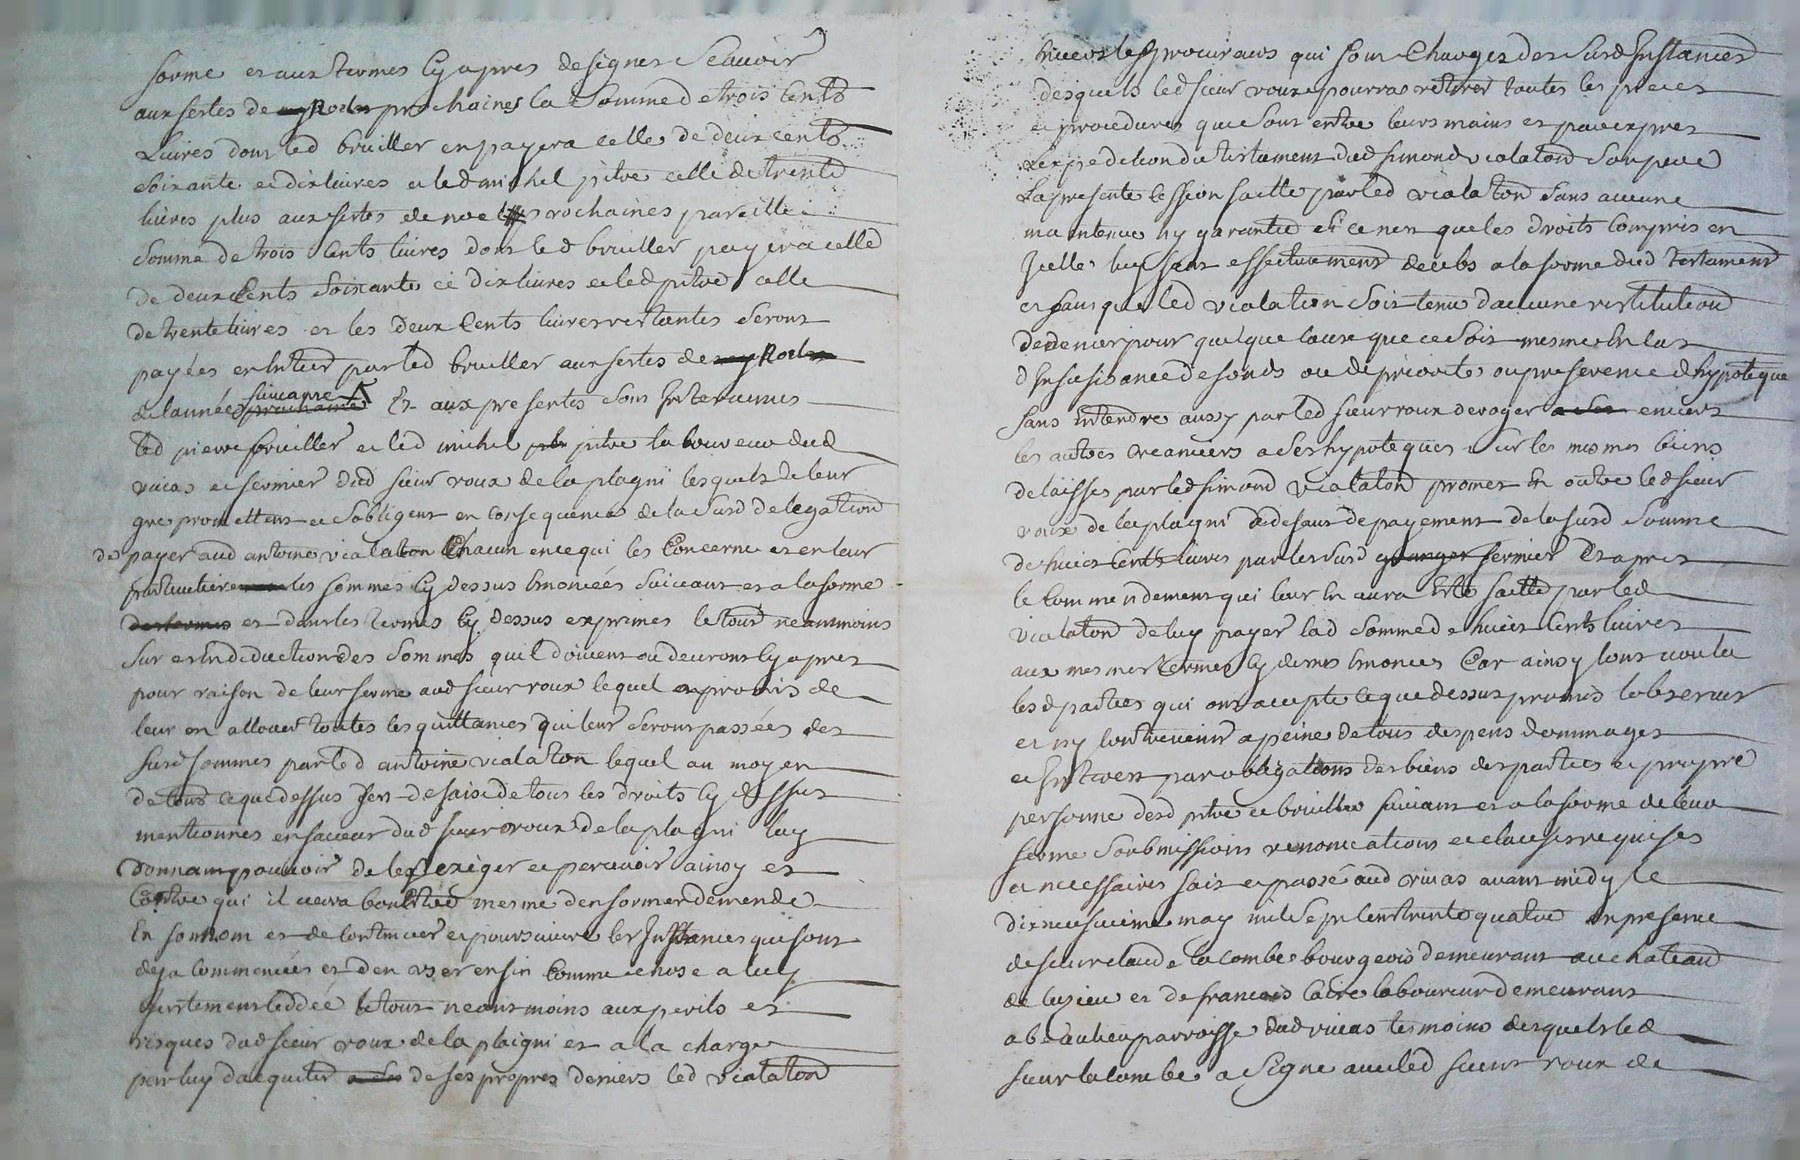 forme et aux termes cy apres designes scavoir
aux festes de prochaines la somme de trois cents
livres dont led bruiller en payera celle de deux cents
soixante et dix livres et led michel pitre celle de trente
livres plus aux festes de noel prochaines pareille
somme de trois cents livres dont led bruiller payera celle
de deux cents soixante et dix livres et led pitre celle
de trente livres et les deux cents livres restantes seront
payées en entier par led bruiller aux festes de
de lannée suivante Et aux presentes sont intervenus
led pierre bruiller et led michel pitre laboureurs dud
vivas et fermier dud sieur roux de la plagni lesquels de leur
gre promettent et sobligent en consequence de la susd delegation
de payer aud antoine vialaton chacun en ce qui les concerne et en leur
particulier les sommes cy dessus enoncées suivant et a la forme
et dans les termes cy dessus exprimes le tout neammoins
sur et en deduction des sommes quil doivent ou devront cy apres
pour raison de leur ferme aud sieur roux lequel a promis de
leur en allouer toutes les quittances qui leur seront passées des
susd sommes par led antoine vialaton lequel au moyen
de tout ce que dessus sen desaisi de tous les droits cy dessus
mentionnes en faveur dud sieur roux de la plagni luy
donnant pouvoir de les exiger et percevoir ainsy et
contre qui il verra bon estre mesme den former demende
en son nom et de continuer et poursuivre les instances qui sont
deja commencées et den user enfin comme chose a luy
le tout neantmoins aux perils et
risques dud sieur roux de la plaigni et a la charge
par luy dacquiter de ses propres deniers led vialaton
envers les procuraurs qui sont charges des susd instances
desquels led sieur roux pourra retirer toutes les pieces
et procedures que sont entre leurs mains et par expres
lexpedition du testament dud simond vialaton son pere
la presente cession faitte par led vialaton sans aucune
maintenue ny garantie si ce nest que les droits compris en
icelle luy sont effectivement deubs a la forme dud testament
et sans que led vialation soit tenu daucune restitution
de denier pour quelque cause que ce soit mesme en cas
dinsufisance de fonds ou de priorite ou preference dhypoteque
sans entendre aussy par led sieur roux deroger envers
les autres creanciers a ses hypoteques sur les mesmes biens
delaisses par led simond vialaton promet en outre led sieur
roux de la plagni a defaut de payement de la susd somme
de huict cents livres par les susd fermier et apres
le commendement qui leur en aura esté faitte par led
vialaton de luy payer lad somme de huict cents livres
aux mesmes termes cy dessus enonces Car ainsy lont voulu
lesd parties qui ont accepte ce que dessus promis lobserver
et ny contrevenir a peine de tous despens dommages
et interests par obligations des biens des parties et propre
personne desd pitre et bruiller suivant et a la forme de leur
ferme soubmissions renonciations et clauses requises
et necessaires fait et passé aud vivas avant midy le
dixneufvieme may mil sept cent trente quatre en presence
de sieur claude lacombe bourgeois demeurant au chateau
de luzieu et de francois laboureur demeurant
a beaulieu parroisse dud vivas tesmoins desquels led
sieur lacombe a signe avec led sieur roux de